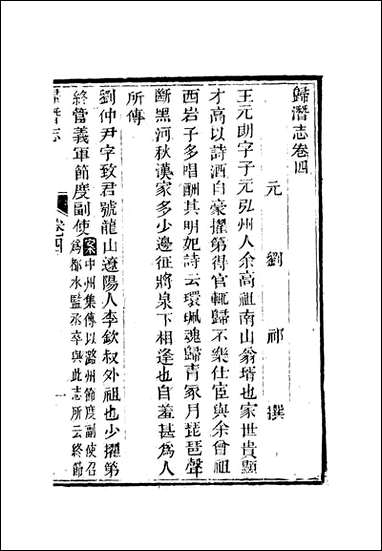 歸潛志卷四
元劉祁撰
王元朗字子元弘州人余高祖南山翁壻也家世貴顯
才高以詩酒自豪擢第得官輒歸不樂仕宦與余曾祖
西岩子多唱酬其明妃詩云環珮魂歸青冢月琵琶聲
斷黑河秋漢家多少邊征將泉下相逢也自羞甚爲人
所傳
劉仲尹字致君號龍山遼陽人李欽叔外祖也少擢第
終管義軍節度副使案中州集傳以潞州節度副使召
爲都水監丞卒與此志所云終節
歸潛志
卷四
一